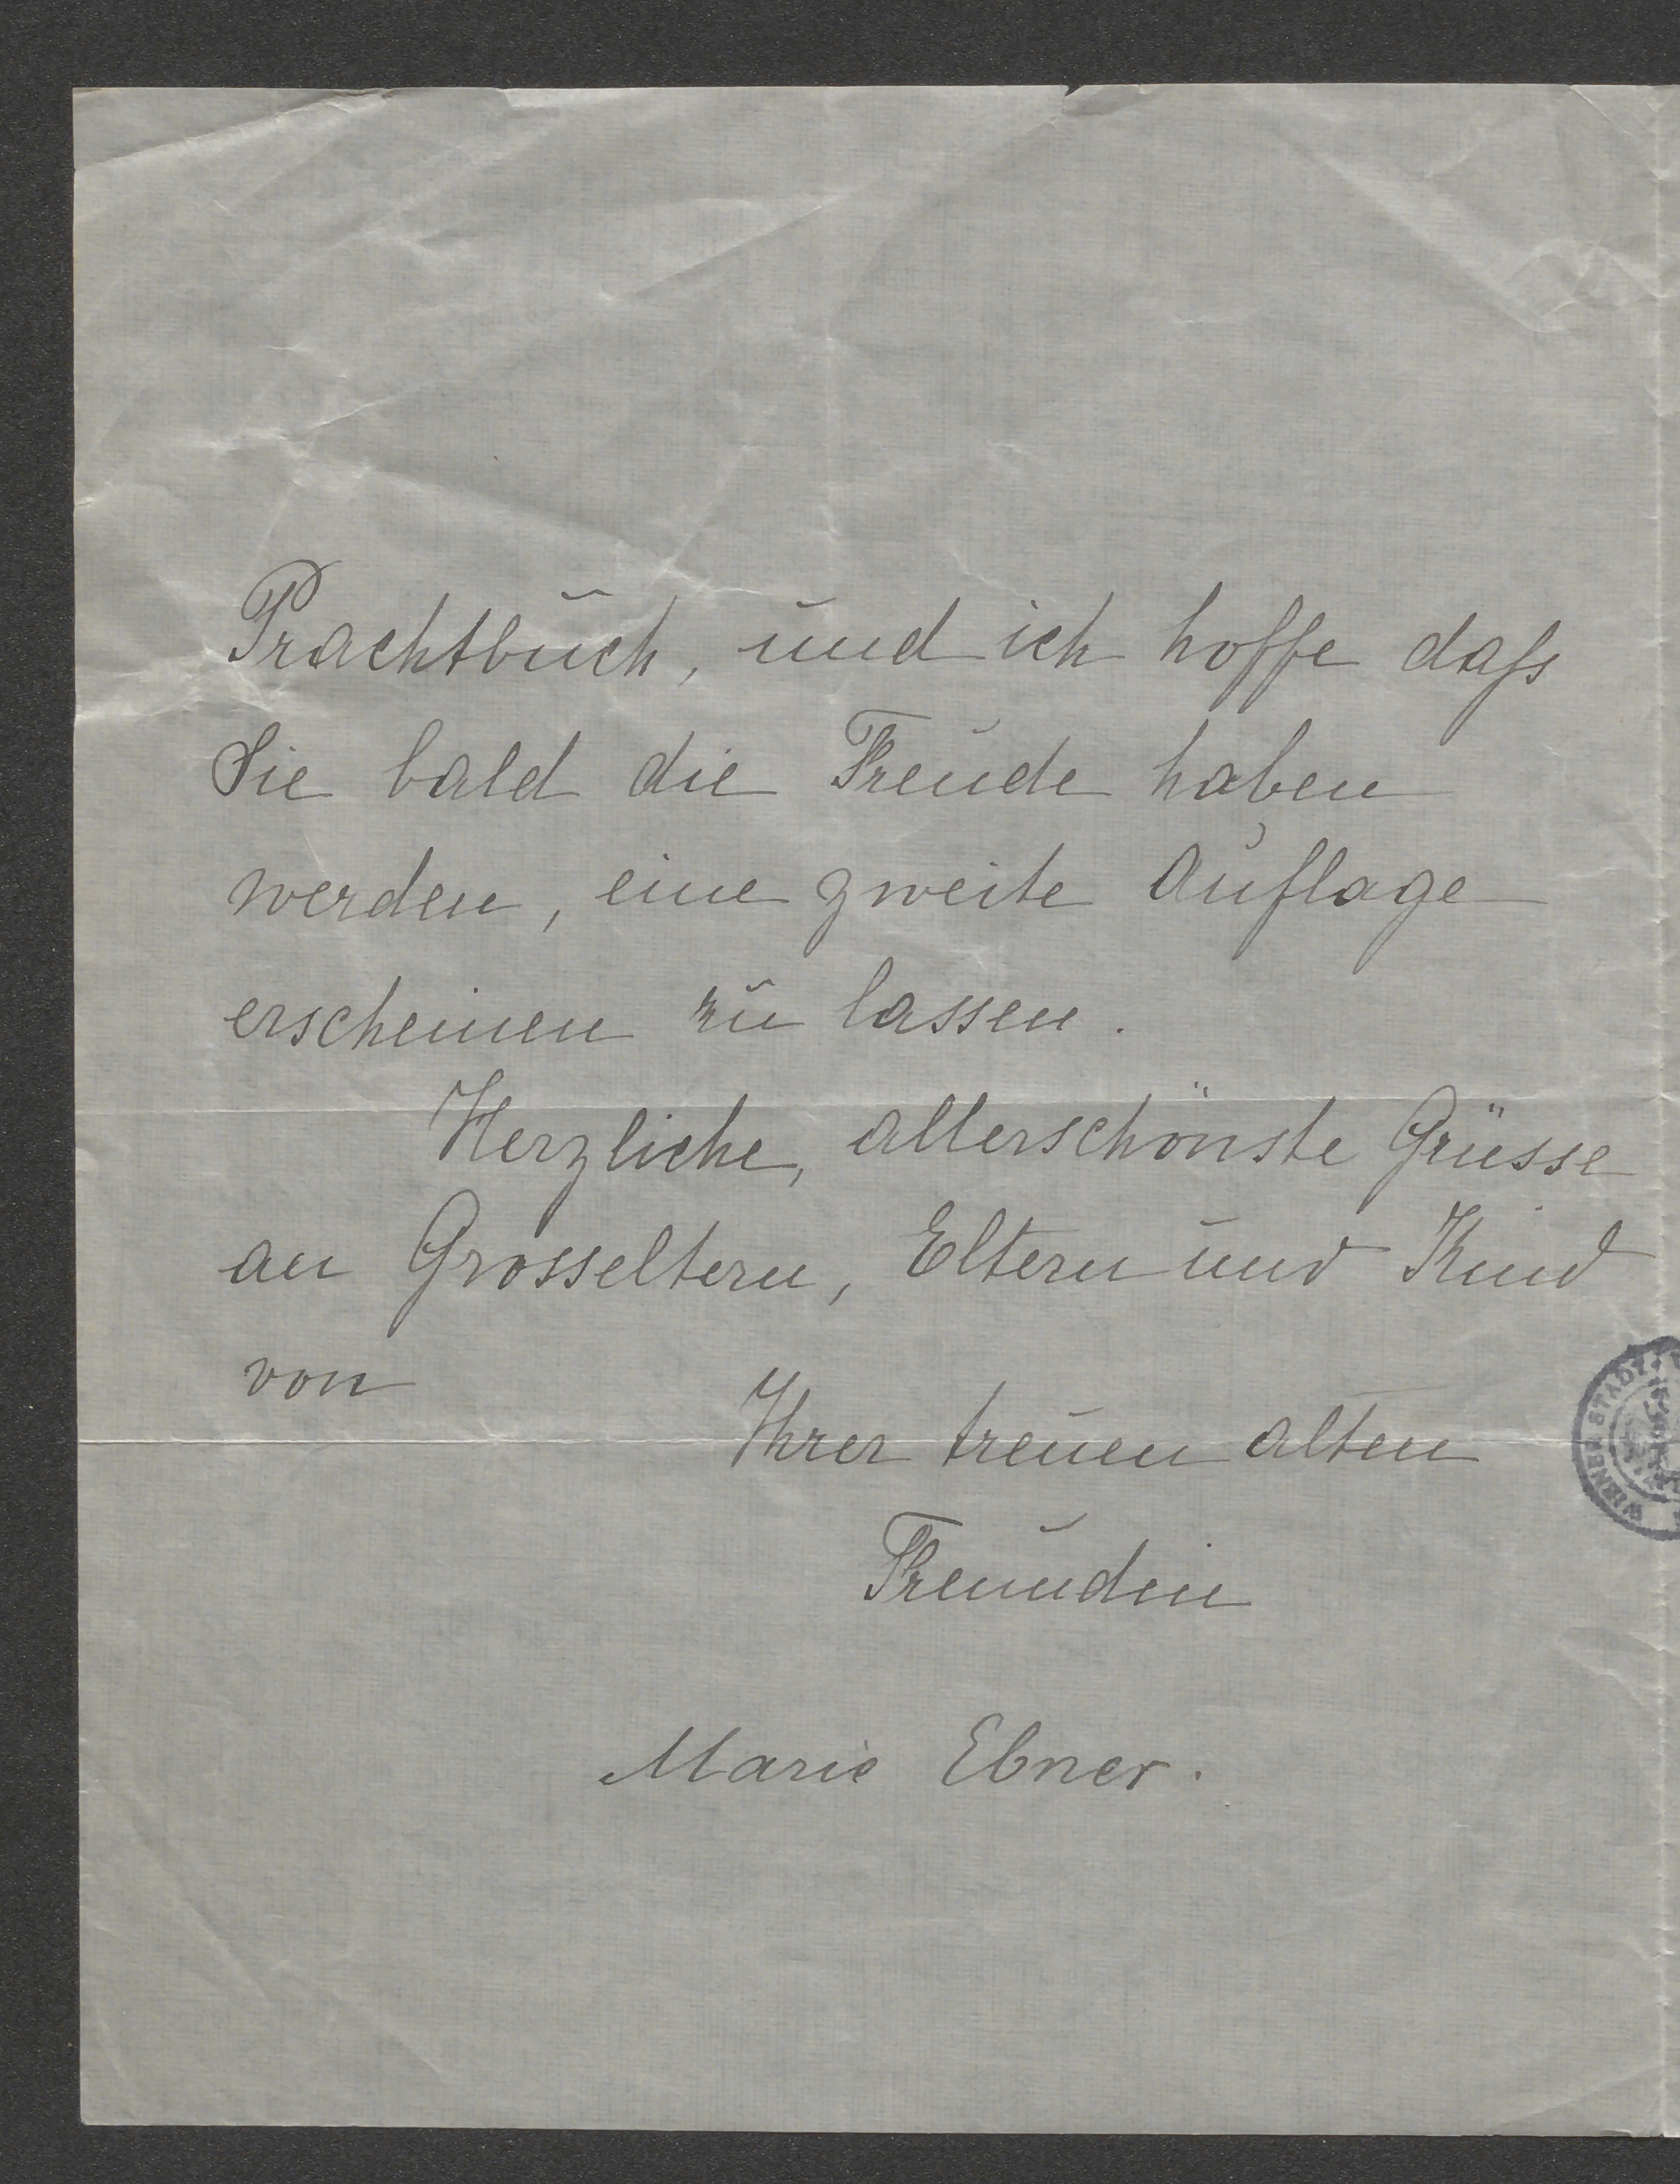 Prachtbuch, und ich hoffe daſs
Sie bald die Freude haben
werden, eine zweite Auflage
erscheinen zu lassen.
Herzliche, allerschönste Grüsse
an Grosseltern, Eltern und Kind
von
Ihrer treuen alten
Freundin
Marie Ebner.
WIENER STADT